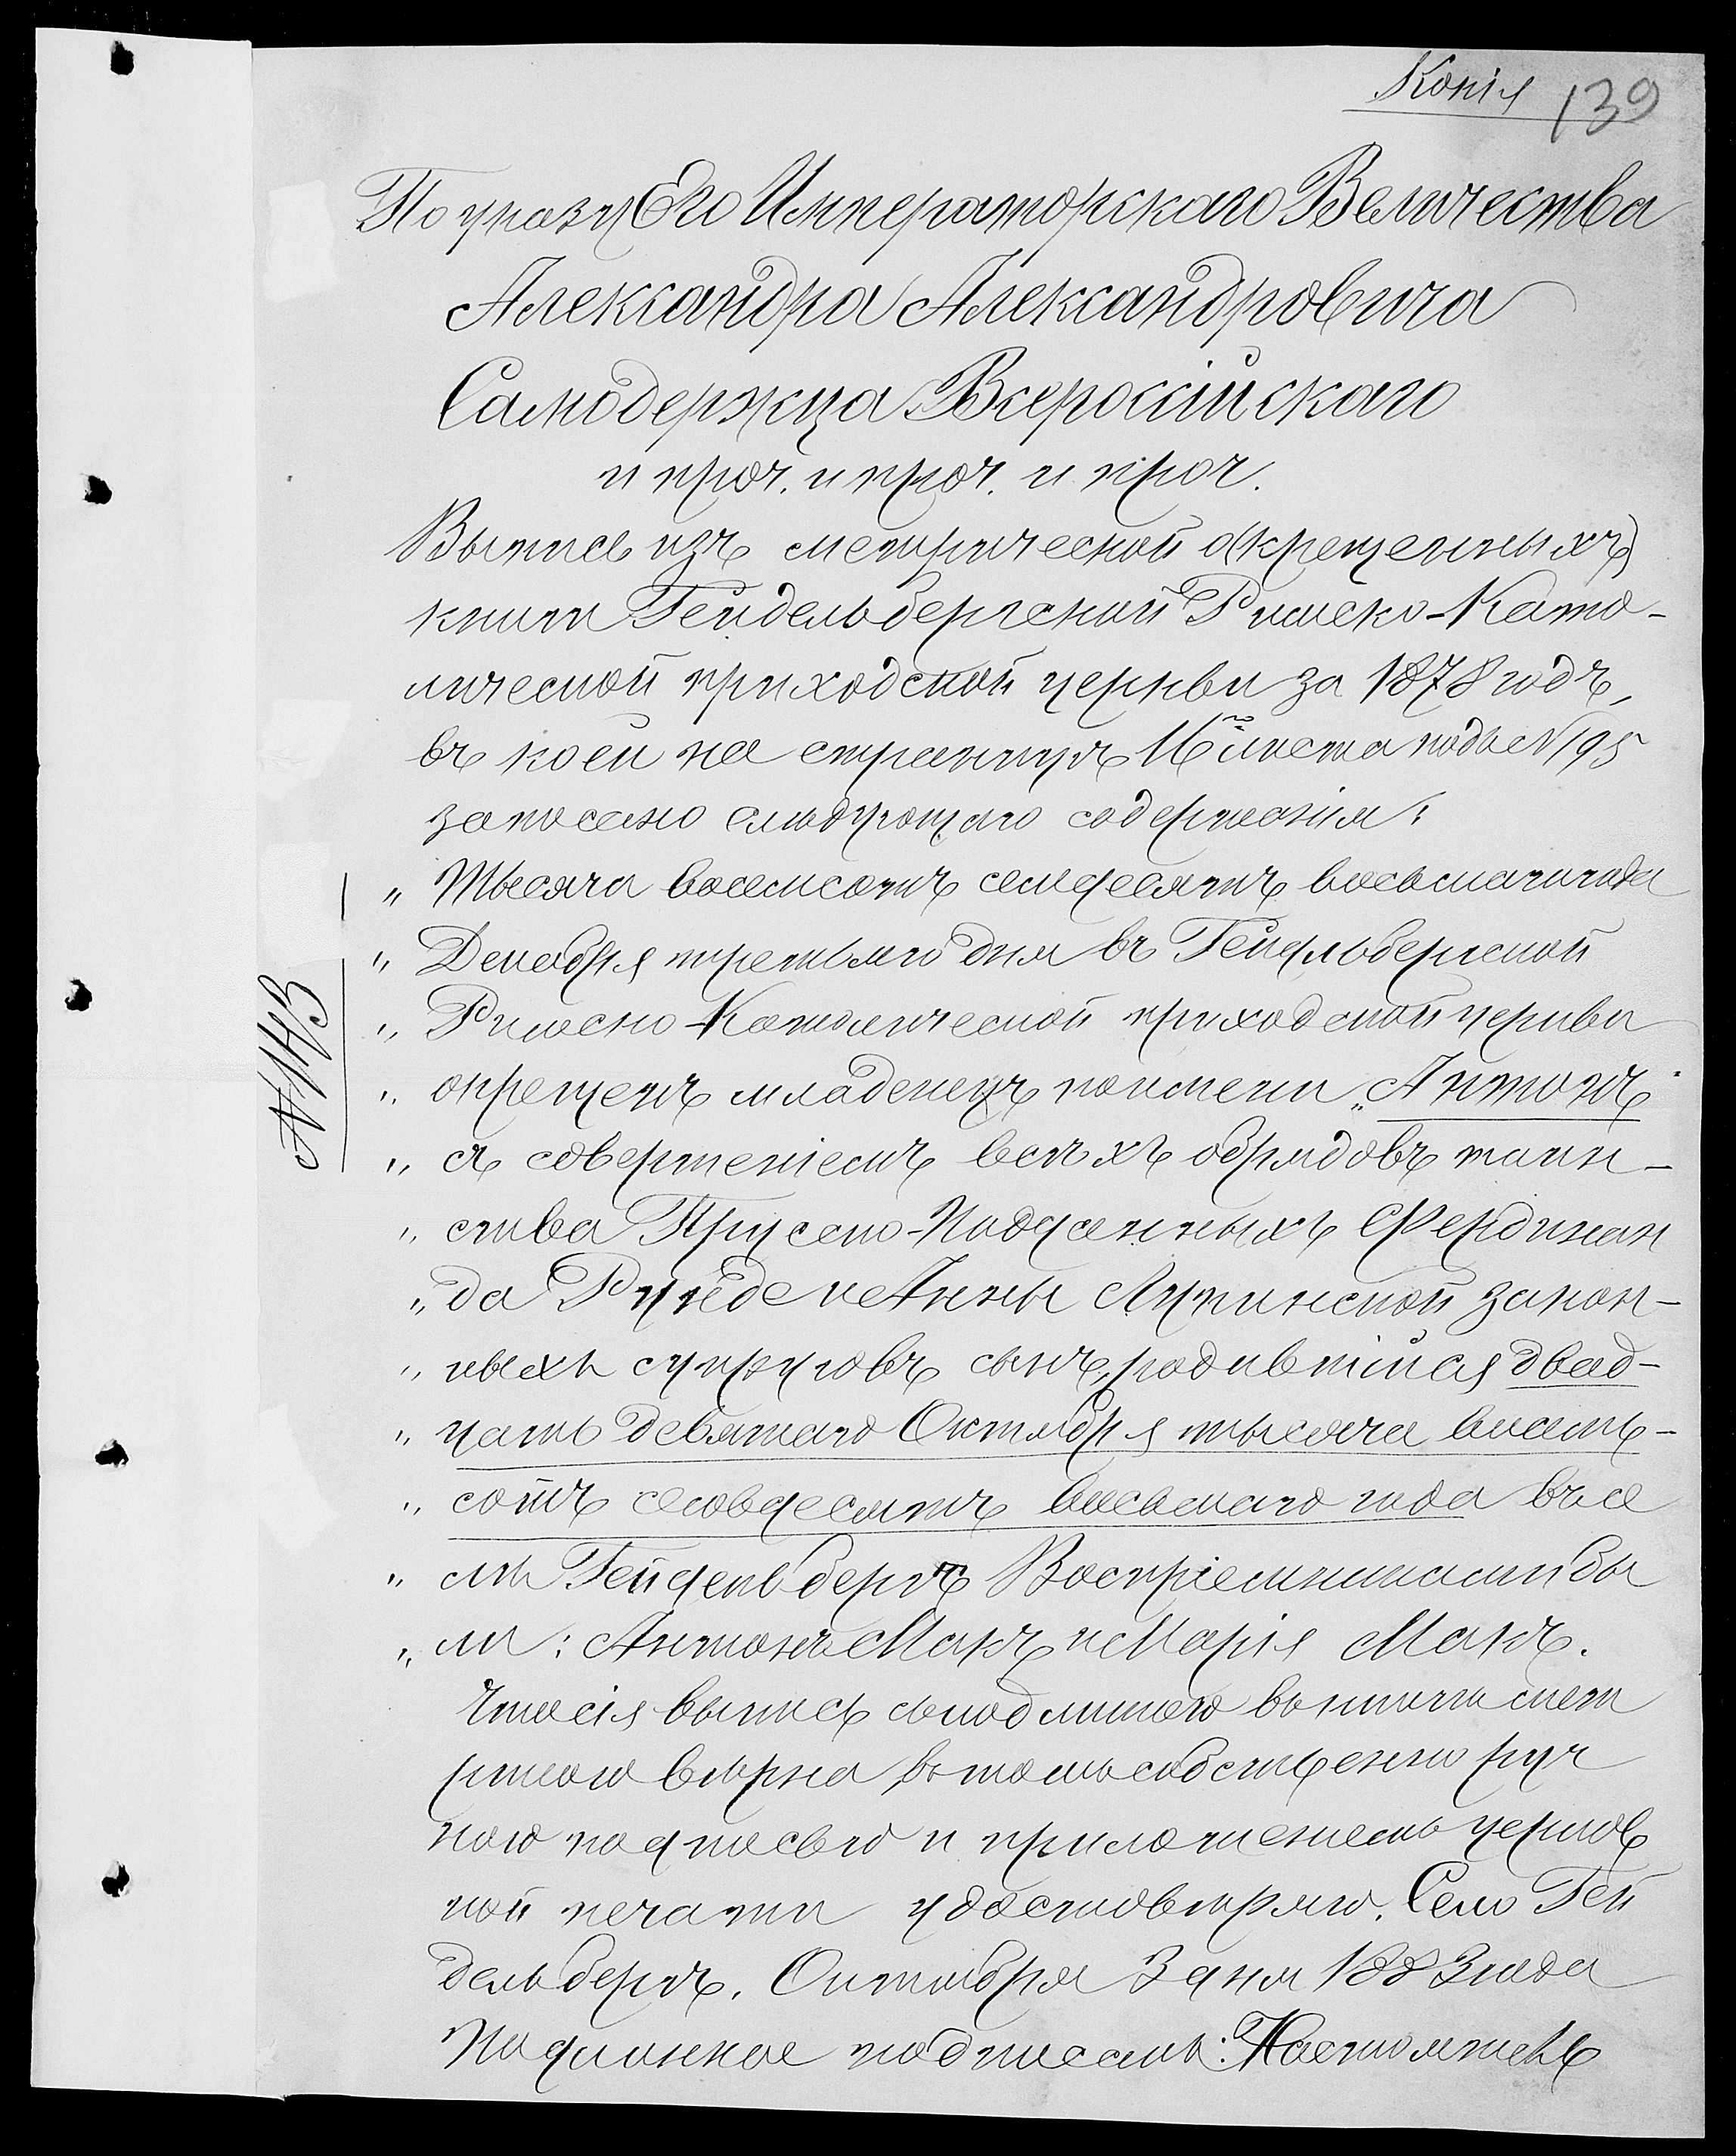 Копія 139
По указу Его Императорскаго Величества
Александра Александровича
Самодержца Всероссійскаго
и проч. и проч. и проч.
Выпись изъ метрической о (крещенныхъ)
книги Гейдельбергской Римско-Като-
лической приходской церкви за 1878 годъ,
въ коей на страницѣ 16й листа подъ N 195
записано слѣдующаго содержанія:
„ Тысяча восемсотъ семдесятъ восьмаго года
„ Декабря третьяго дня въ Гейдельбергской
„ Римско-Католической приходской церкви
„ окрещенъ младенецъ по имени „Антонъ"
„ съ совершеніемъ всѣхъ обрядовъ таин-
„ ства Прусско-Подданныхъ Фердинан
„ да Рунде и Анны Лупинской закон-
„ ныхъ супруговъ сынъ, родившійся двад-
„ цать девятаго Октября тысяча восемь-
„ сотъ семьдесятъ восьмаго года въ се
„ лѣ Гейдельбергѣ Воспріемниками бы
„ ли: Антонъ Макъ и Марія Макъ.
Что сія выпись съ подлинною въ книгѣ мет
рикою вѣрна въ томъ собственно руч
ною подписью и приложеніемъ церков
ной печати удостовѣряю. Село Гей
дельбергъ. Октября 3 дня 1883 года
Подлинное подписалъ: Настоятель
АНВ